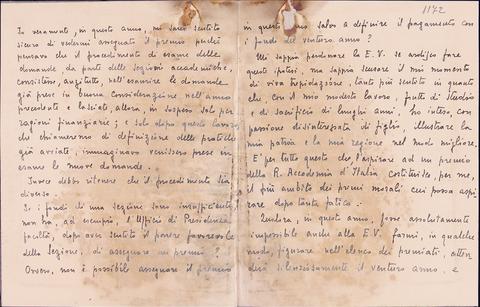 Io veramente, in questo anno, mi sarei sentito
sicuro di vedermi assegnato il premio perché
pensavo che il procedimento di esame delle
domande da parte delle Sezioni accademiche,
consistesse, anzitutto, nell'esaurire le domande
già prese in buona considerazione nell'anno
precedente e lasciate, allora, in sospeso sol per
ragioni finanziarie; e solo dopo questo lavoro
che chiameremo di definizione delle pratiche
già avviate, immaginavo venissero prese in
esame le nuove domande.
Invece debbo ritenere che il procedimento sia
diverso.
Se i fondi di una Sezione sono insufficienti,
non ha, ad esempio, l'Ufficio di Presidenza
facoltà, dopo aver sentito il parere favorevole
della Sezione, di assegnare un premio?
Ovvero, non è possibile assegnare il premio
1172
in questo anno salvo a definire il pagamento con
i fondi del venturo anno?
Mi sappia perdonare la E.V. se ardisco fare
queste ipotesi, ma sappia scusare il mio momento
di viva trepidazione, tanto più sentita in quanto
che, con il mio modesto lavoro, frutto di studio
e di sacrificio di lunghi anni, ho inteso, con
passione disinteressata di figlio, illustrare la
mia patria e la mia regione nel modo migliore.
E' per tutto questo che, l'aspirare ad un premio
della R. Accademia d'Italia costituisce, per me,
il più ambito dei premi morali cui possa aspi-
rare dopo tante fatiche.
Qualora, in questo anno, fosse assolutamente
impossibile anche alla E.V. farmi, in qualche
modo, figurare nell'elenco dei premiati, atten-
derò silenziosamente il venturo anno, e